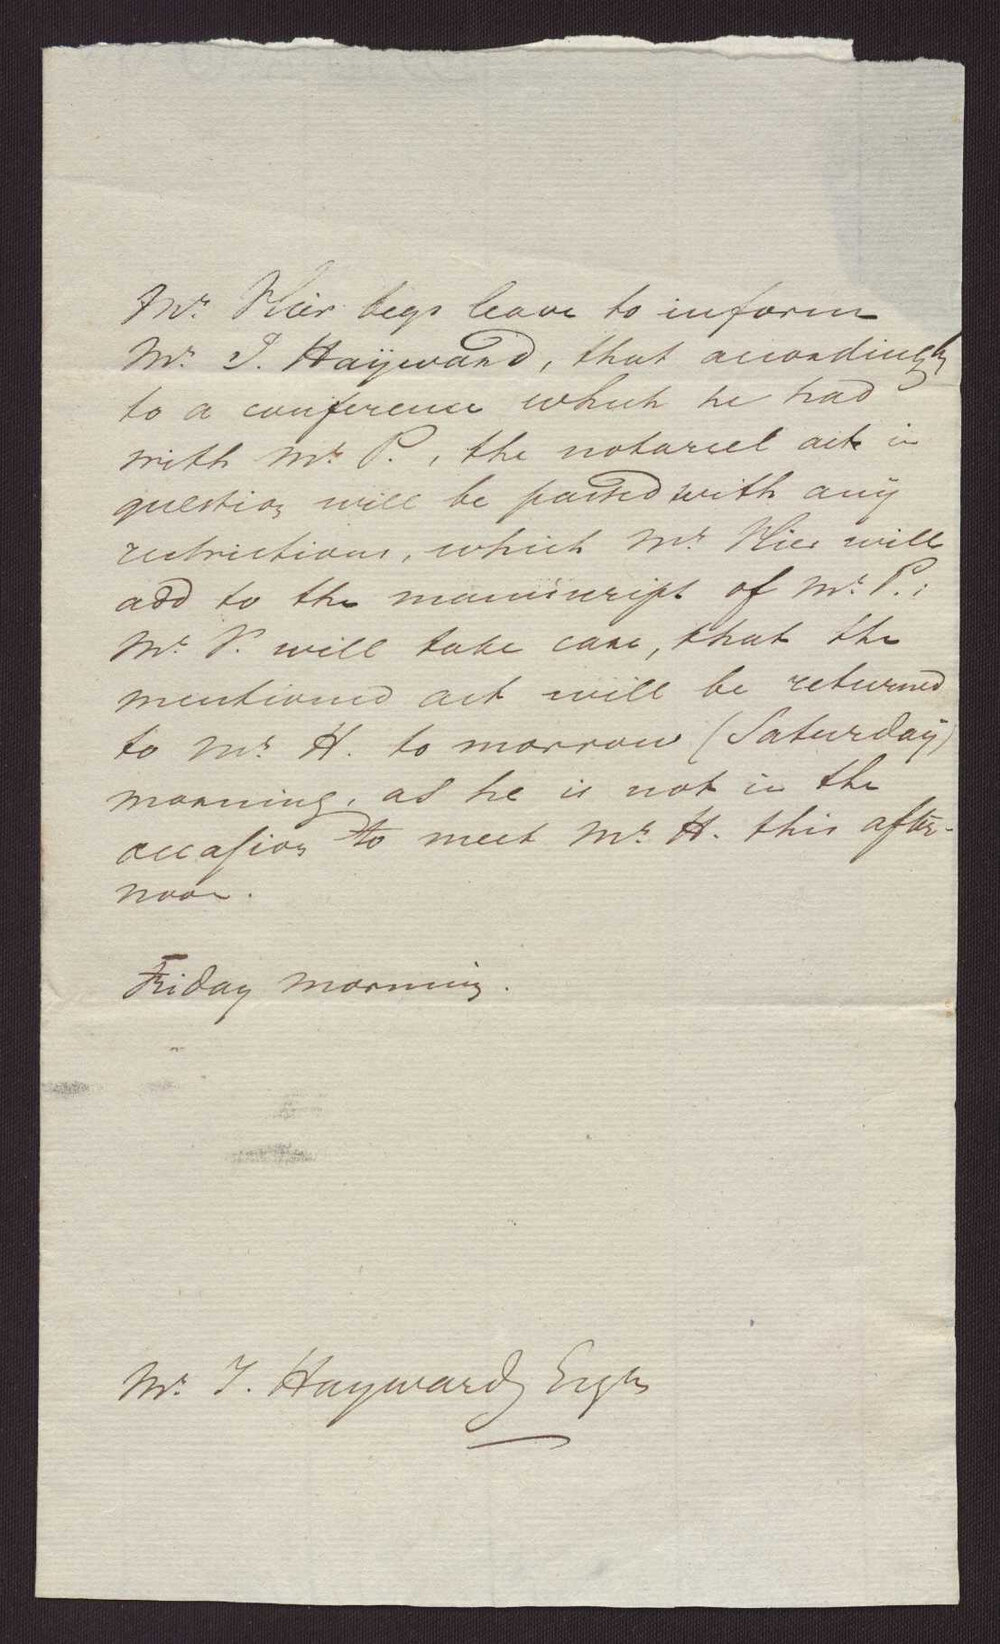 Mr. Kier begs leave to inform
Mr. J. Haÿward, that accordingly
to a conference which he had
with Mr. P., the notareel act in
question will be passed with anÿ
restrictions, which Mr. Kier will
add to the manuscript of Mr. P.;
Mr. P. will take care, that the
mentioned act will be returned
to Mr. H. to morrow (Saturdaÿ)
morning, as he is not in the
occasion to meet Mr. H. this after-
noon.
Friday morning.
Mr. J. Hayward, Esqr